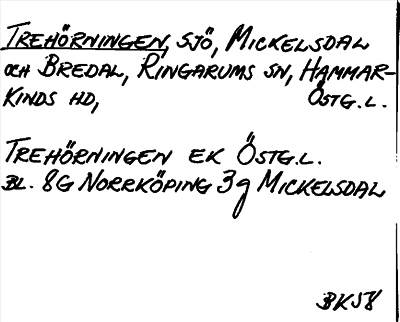 TREHÖRNINGEN, SJÖ, MICKELSDAL
OCH BREDAL, RINGARUMS SN, HAMMAR-
KINDS HD, ÖSTG.L.
TREHÖRNINGEN EK ÖSTG.L.
BL. 8G NORRKÖPING 3g MICKELSDAL
BK58